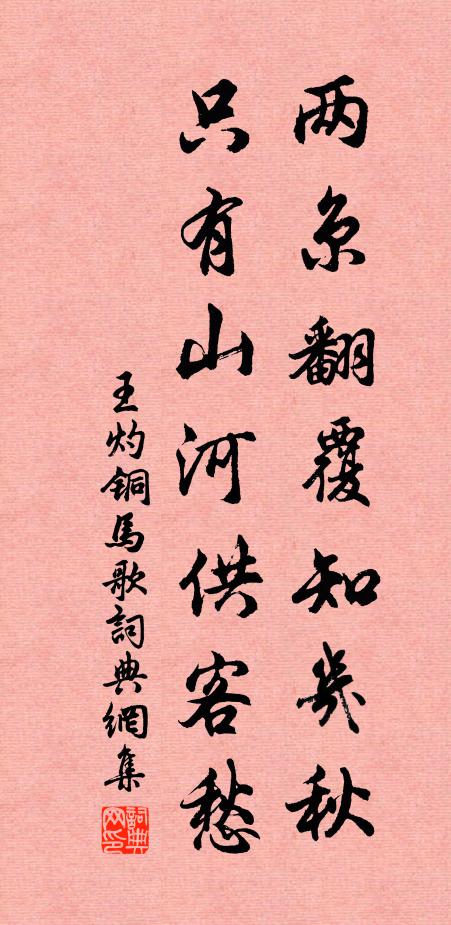 两京翻覆知几秋
只有山河供客愁
王灼铜馬歌詞典網集
詞典网印